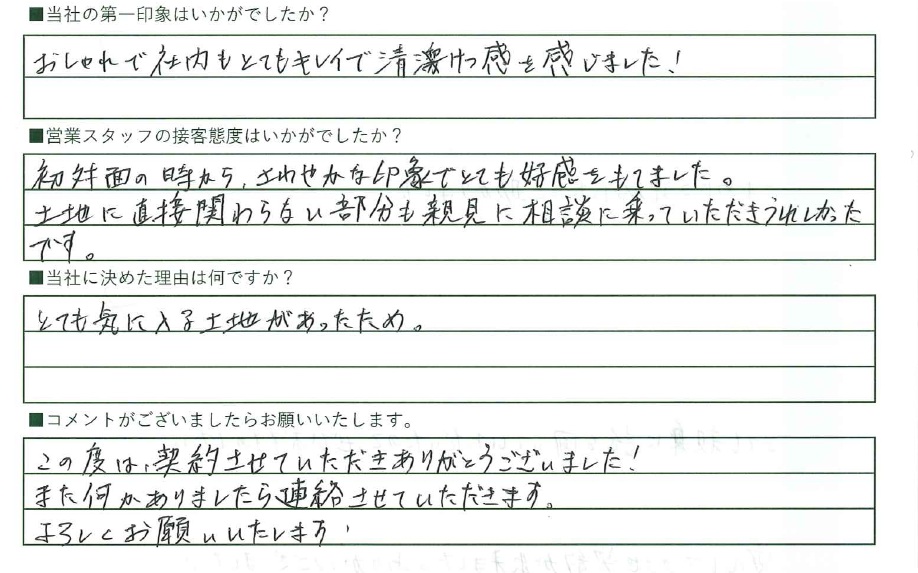 ■当社の第一印象はいかがでしたか?
おしゃれで社内もとてもキレイで清潔けつ感を感じました!
■営業スタッフの接客態度はいかがでしたか?
初対面の時から、さわやかな印象でとても好感をもてました。
土地に直接関わらない部分も親見に相談に乗っていただきうれしかった
です。
■当社に決めた理由は何ですか?
とても気に入る土地があったため。
■コメントがございましたらお願いいたします。
この度は、契約させていただきありがとうございました!
また何かありましたら連絡させていただきます。
よろしくお願いいたします